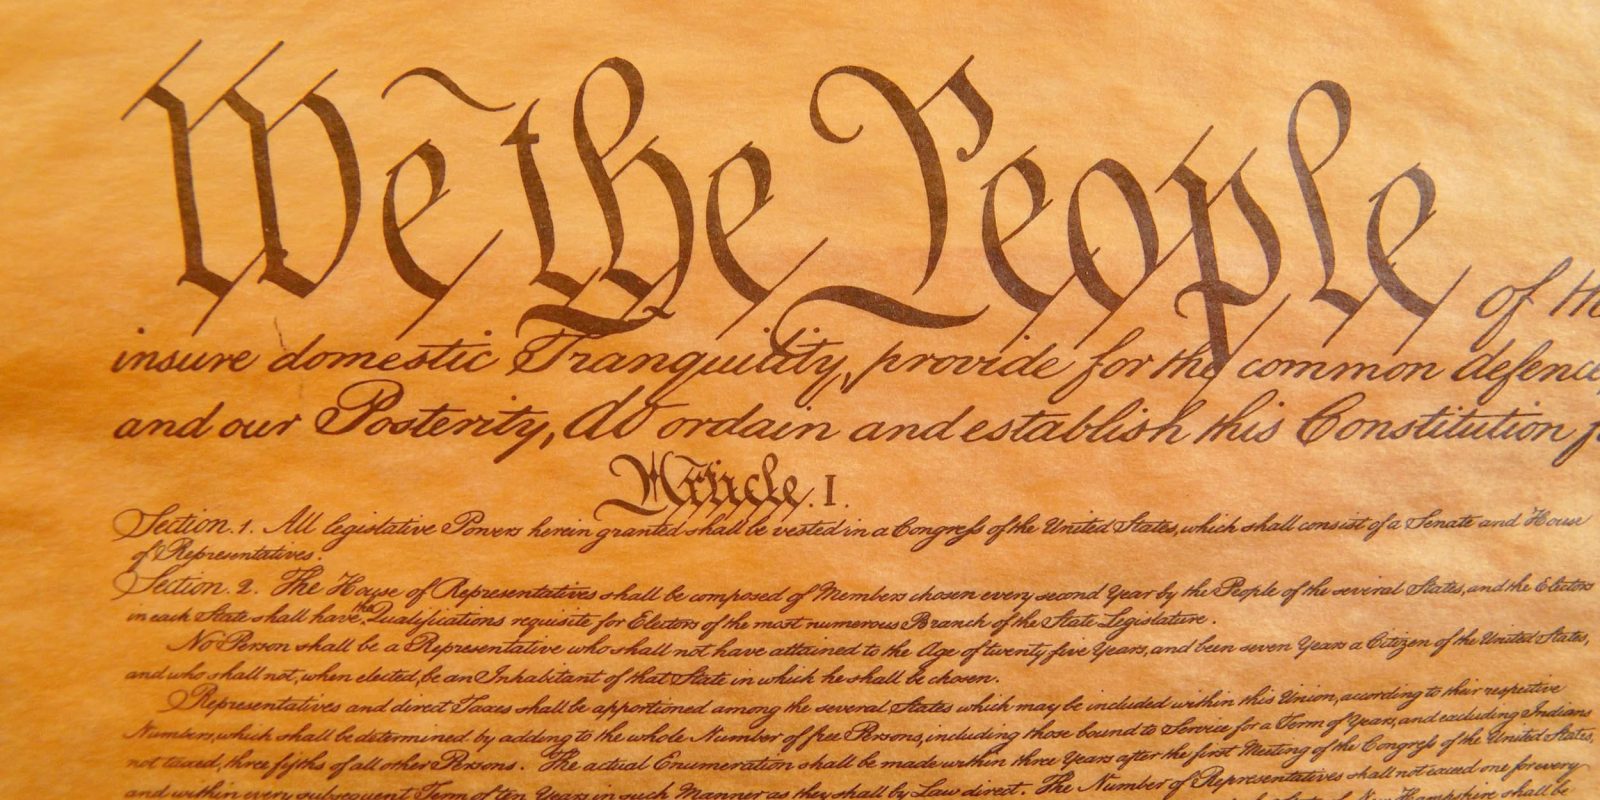 We the People of th
insure domestic Tranquility, provide for the common defence,
and our Posterity, do ordain and establish this Constitution f
Article. I.
Section. 1. All legislative Powers herein granted shall be vested in a Congreſs of the United States, which shall consist of a Senate and House
of Representatives.
Section. 2. The House of Representatives shall be composed of Members chosen every second Year by the People of the several States, and the Electors
in each State shall have the Qualifications requisite for Electors of the most numerous Branch of the State Legislature.
No Person shall be a Representative who shall not have attained to the Age of twenty five Years, and been seven Years a Citizen of the United States,
and who shall not, when elected, be an Inhabitant of that State in which he shall be chosen.
Representatives and direct Taxes shall be apportioned among the several States which may be included within this Union, according to their respective
Numbers, which shall be determined by adding to the whole Number of free Persons, including those bound to Service for a Term of Years, and excluding Indians
not taxed, three fifths of all other Persons. The actual Enumeration shall be made within three Years after the first Meeting of the Congreſs of the United States,
and within every subsequent Term of ten Years, in such Manner as they shall by Law direct. The Number of Representatives shall not exceed one for every
State of New Hampshire shall be